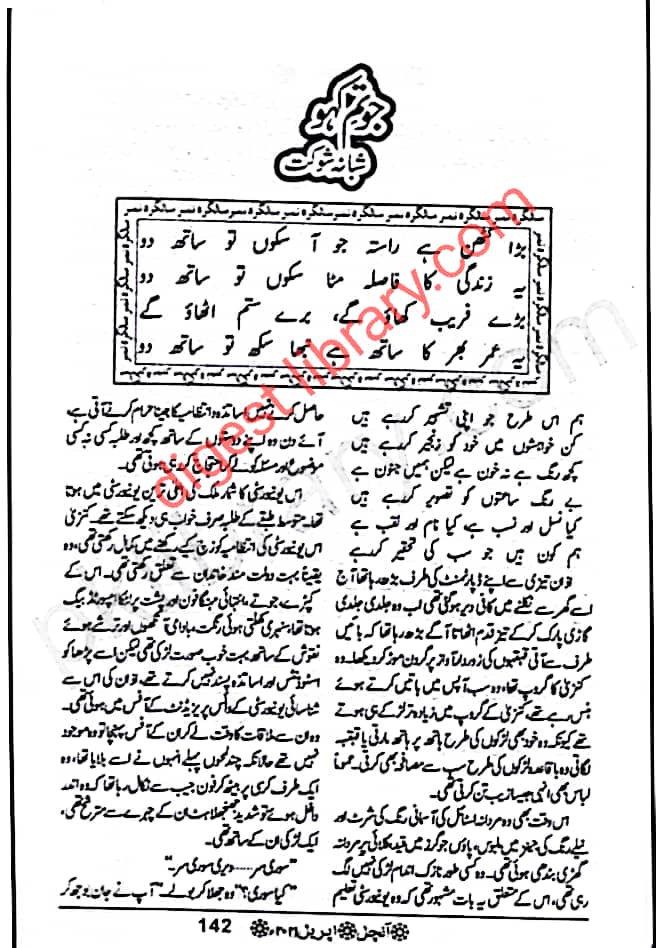 جو تم کہو
شبانہ شوکت
سالگرہ نمبر سالگرہ نمبر سالگرہ نمبر سالگرہ نمبر سالگرہ نمبر سالگرہ نمبر سالگرہ نمبر
بڑا کٹھن ہے راستہ جو آ سکوں تو ساتھ دو
یہ زندگی کا فاصلہ مٹا سکوں تو ساتھ دو
بڑے فریب کھاؤ گے، برے ستم اٹھاؤ گے
یہ عمر بھر کا ساتھ ہے نبھا سکو تو ساتھ دو
ہم اس طرح جو اپنی تشہیر کررہے ہیں
کن خواہشوں میں خود کو زنجیر کررہے ہیں
کچھ رنگ ہے نہ خون ہے لیکن ہمیں جنون ہے
بے رنگ ساعتوں کو تصویر کررہے ہیں
کیا نسل اور نسب ہے، کیا نام اور لقب ہے
ہم کون ہیں جو سب کی تحقیر کررہے ہیں
تیزی سے اپنے ڈپارٹمنٹ کی طرف بڑھ رہا تھا آج
اسے گھر سے نکلنے میں کافی دیر ہوگئی تھی اب وہ جلدی جلدی
گاڑی پارک کرکے تیز قدم اٹھاتا آگے بڑھ رہا تھا کہ بائیں
طرف سے آتی قہقہوں کی زوردار آواز پر گردن موڑ کر دیکھا۔ وہ
کنزیٰ کا گروپ تھا، وہ سب آپس میں باتیں کرتے ہوئے
ہنس رہے تھے، کنزیٰ کے گروپ میں زیادہ تر لڑکے ہی ہوتے
تھے کیونکہ وہ خود بھی لڑکوں کی طرح ہاتھ پر ہاتھ مارتی یا قہقہہ
لگاتی وہ باقاعدہ لڑکوں کی طرح سب سے مصافحہ بھی کرتی۔ عموماً
لباس بھی انہی جیسا زیب تن کرتی تھی۔
اس وقت بھی وہ مردانہ اسٹائل کی آسمانی رنگ کی شرٹ اور
نیلے رنگ کی جینز میں ملبوس، پاؤں جوگرز میں قید کلائی پر مردانہ
گھڑی بندھی ہوئی تھی۔ وہ کسی طور نازک اندام لڑکی نہیں لگ
رہی تھی، اس کے متعلق یہ بات مشہور تھی کہ وہ یونیورسٹی تعلیم
حاصل کرنے نہیں اساتذہ و انتظامیہ کا جینا حرام کرنے آتی ہے
آئے دن وہ اپنے دوستوں کے ساتھ کچھ اور طلبہ کسی نہ کسی
موضوع اور مسئلہ کو لے کر احتجاج کررہی ہوتی تھی۔
اس یونیورسٹی کا شمار ملک کی اعلیٰ ترین یونیورسٹی میں ہوتا
تھا۔ متوسط طبقے کے طلبہ صرف خواب ہی دیکھ سکتے تھے۔ کنزیٰ
اس یونیورسٹی کی انتظامیہ کو زچ کیے رکھنے میں کمال رکھتی تھی، وہ
یقیناً بہت دولت مند خاندان سے تعلق رکھتی تھی۔ اس کے
کپڑے، جوتے، انتہائی مہنگا فون اور پشت پر لٹکا امپورٹڈ بیگ
ہوتا تھا، سنہری گھلتی ہوئی رنگت، بادامی آنکھوں اور ترشے ہوئے
نقوش کے ساتھ بہت خوب صورت لڑکی تھی لیکن اسے پڑھاکو
اسٹوڈنٹس اور اساتذہ پسند نہیں کرتے تھے، کی اس سے
شناسائی یونیورسٹی کے وائس پریذیڈنٹ کے آفس میں ہوئی تھی۔
وہ ان سے ملاقات کا وقت لے کر ان کے آفس پہنچا تو وہ موجود
نہیں تھے حالانکہ چند لمحوں پہلے انہوں نے اسے بلایا تھا، وہ
ایک طرف کرسی پر بیٹھ کر فون جیب سے نکال رہا تھا کہ وہ اندر
داخل ہوئے تو شدید جھنجھلاہٹ ان کے چہرے سے مترشح تھی،
ایک لڑکی ان کے ساتھ تھی۔
"سوری سر...... ویری سوری سر۔"
"کیا سوری؟" وہ جھلا کر بولے۔ "آپ نے جان بوجھ کر
142 آنچل اپریل
digest library.com